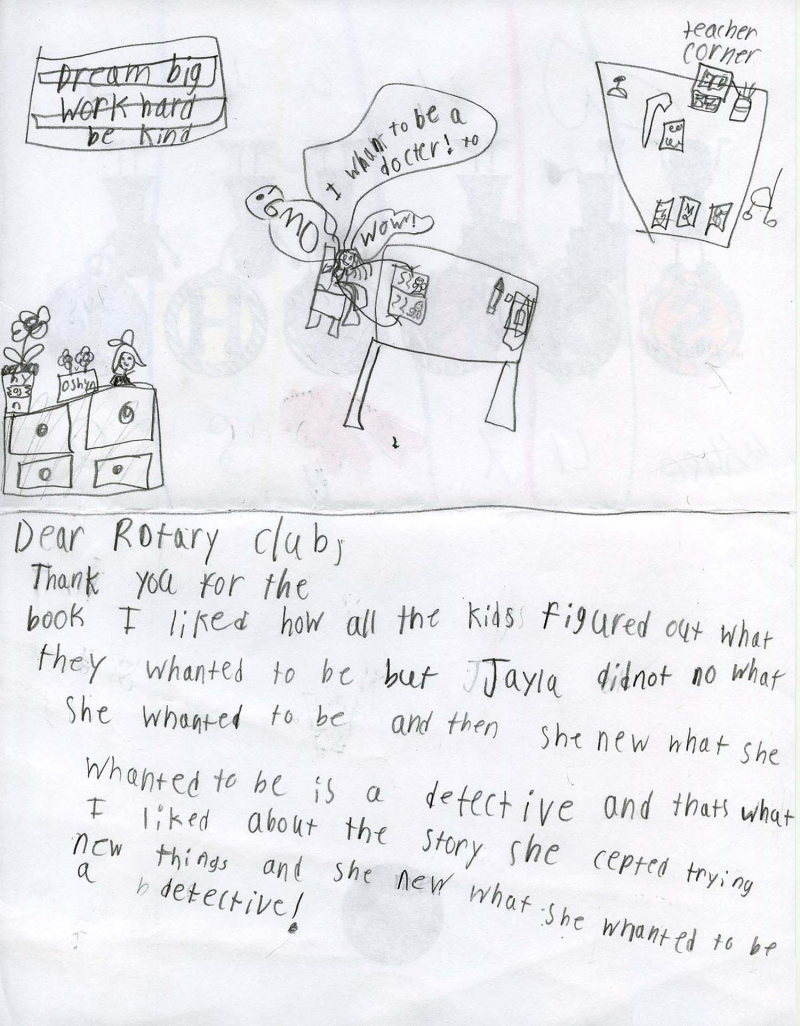 teacher
corner
Dream big
Work hard
be kind
I whant to be a
docter! to
OMG
WOW!
Dear Rotary club,
Thank you for the
book I liked how all the kids figured out what
they whanted to be but Jayla didnot no what
she whanted to be and then she new what she
whanted to be is a detective and thats what
I liked about the story she cepted trying
new things and she new what she whanted to be
a detective!